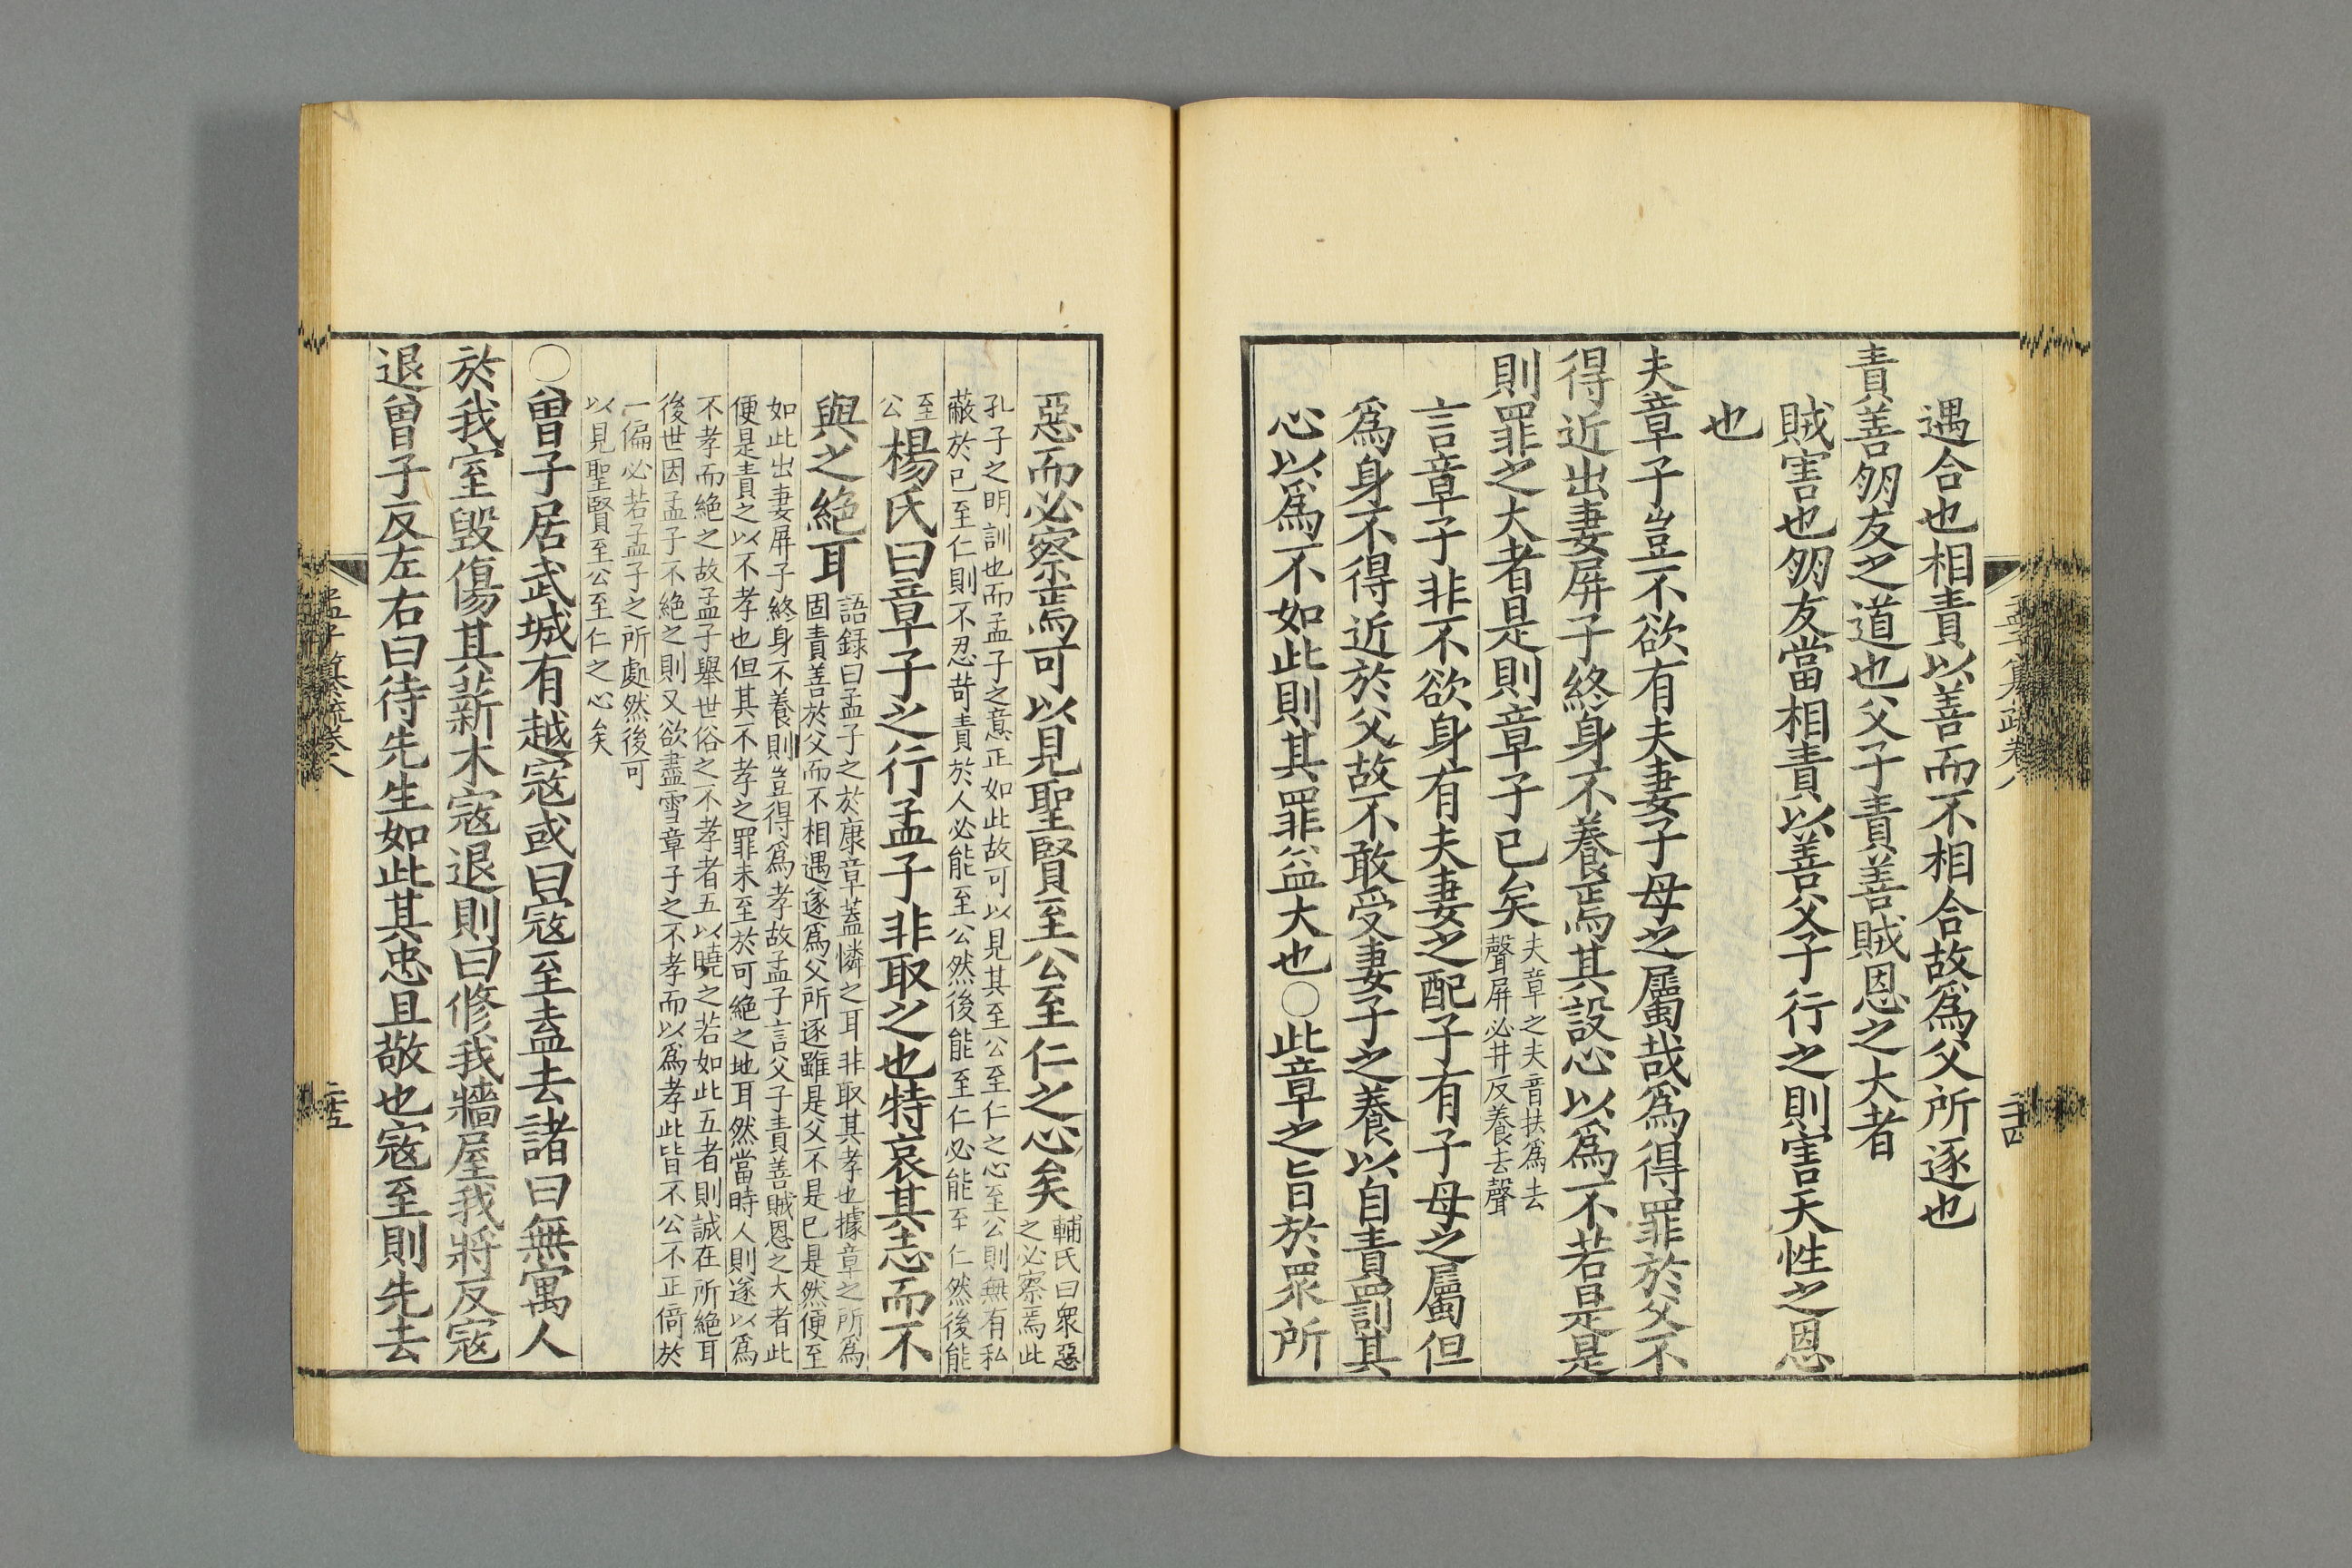 遇合也相責以善而不相合故爲父所逐也
責善朋友之道也父子責善賊恩之大者
賊害也朋友當相責以善父子行之則害天性之恩
也
夫章子豈不欲有夫妻子母之屬哉爲得罪於父不
得近出妻屏子終身不養焉其設心以爲不若是是
則罪之大者是則章子已矣
夫章之夫音扶爲去
聲屏必井反養去聲
言章子非不欲身有夫妻之配子有子母之屬但
爲身不得近於父故不敢受妻子之養以自責罰其
心以爲不如此則其罪益大也○此章之旨於眾所
惡而必察焉可以見聖賢至公至仁之心矣
輔氏曰衆惡
之必察焉此
孔子之明訓也而孟子之意正如此故可以見其至公至仁之心至公則無有私
蔽於已至仁則不忍苛責於人必能至公然後能至仁必能至仁然後能
至
公
楊氏曰章子之行孟子非取之也特哀其志而不
與之絶耳
語録曰孟子之於康章蓋憐之耳非取其孝也據章之所爲
固責善於父而不相遇遂爲父所逐雖是父不是已是然便至
如此出妻屏子終身不養則豈得爲孝故孟子言父子責善賊恩之大者此
便是責之以不孝也但其不孝之罪未至於可絶之地耳然當時人則遂以爲
不孝而絶之故孟子舉世俗之不孝者五以曉之若如此五者則誠在所絶耳
後世因孟子不絶之則又欲盡雪章子之不孝而以爲孝此皆不公不正倚於
一偏必若孟子之所處然後可
以見聖賢至公至仁之心矣
○曾子居武城有越寇或曰寇至盍去諸曰無寓人
於我室毀傷其薪木寇退則曰修我牆屋我將反寇
退曾子反左右曰待先生如此其忠且敬也寇至則先去
孟子纂疏卷八
二十五